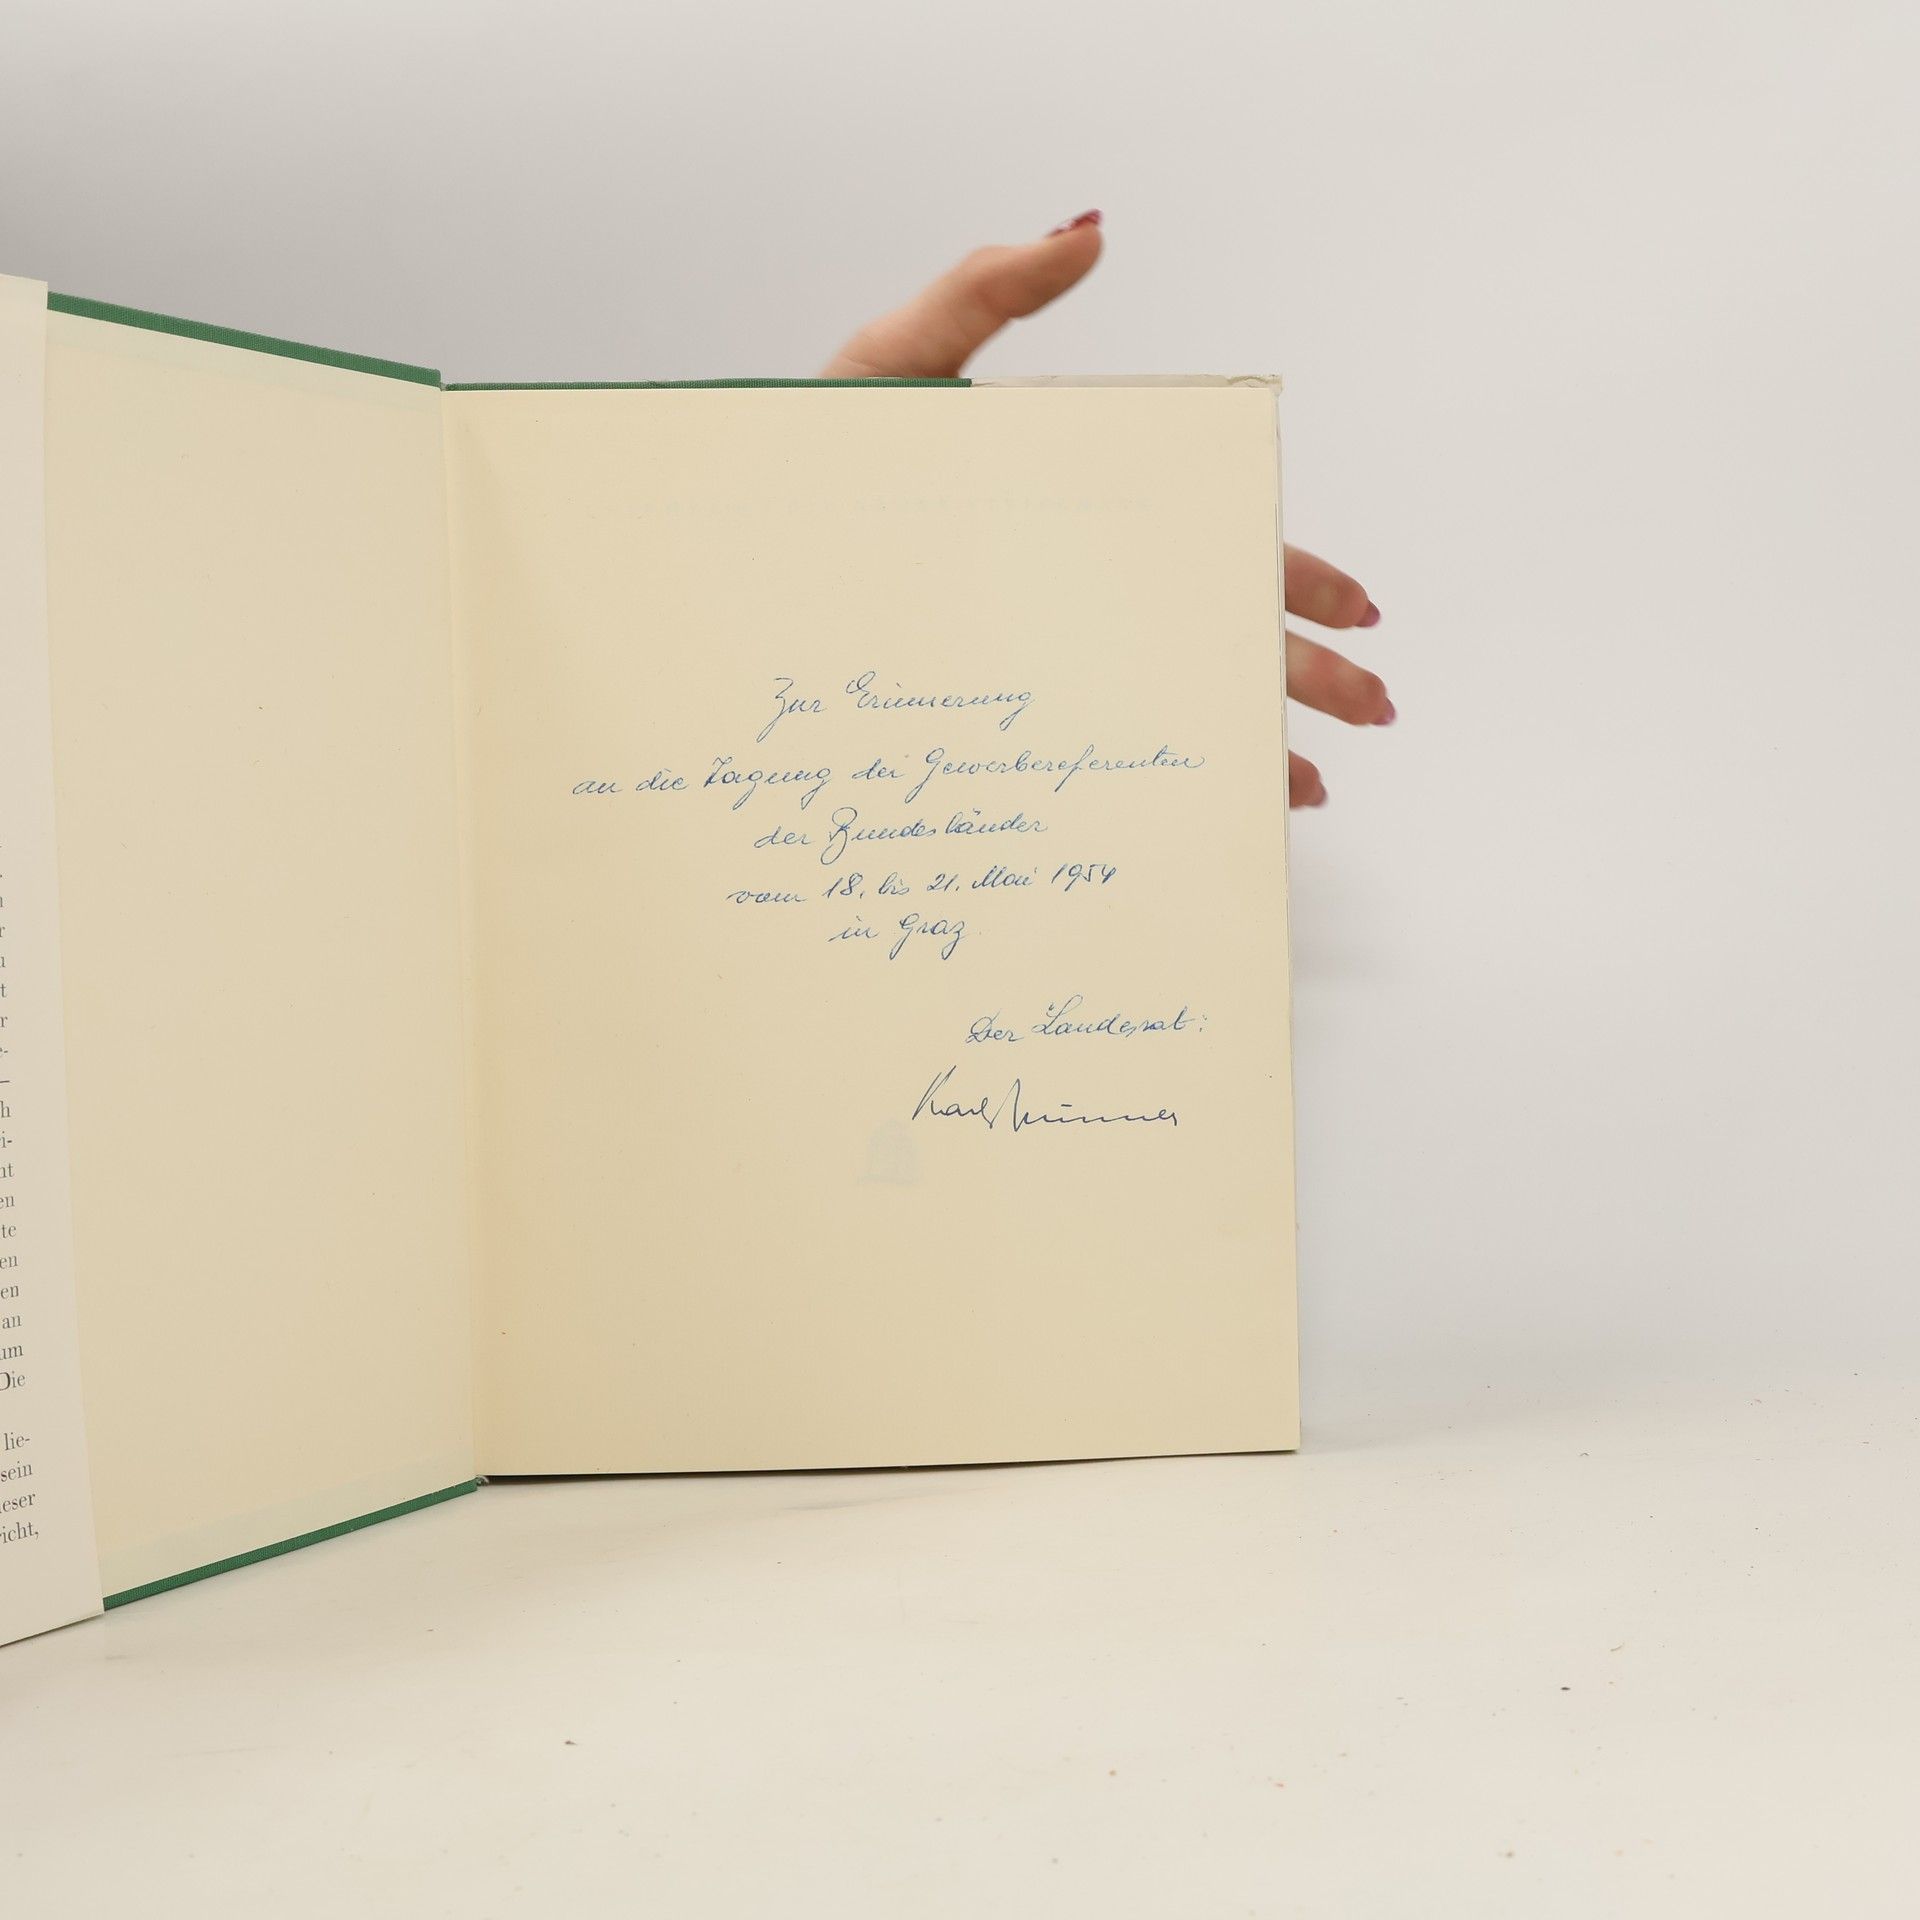 n
r
u
t
r
e-
–
h
i-
nt
en
te
en
en
an
um
Die
lie-
sein
ieser
richt,
Zur Erinnerung
an die Tagung der Gewerbereferenten
der Bundesländer
vom 18. bis 21. Mai 1954
in Graz.
Der Landesrat:
Karl Brunner